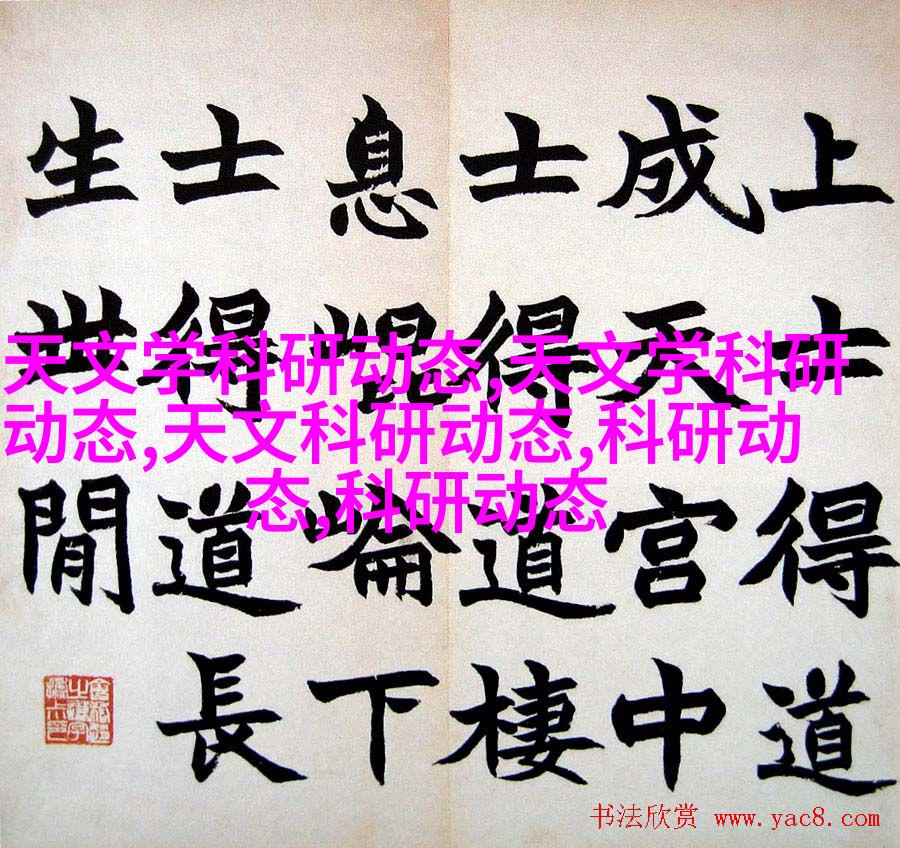 上士得道
成天宫中
士得道棲
息崐崘下
士得道長
生世閒
天文学科研动态,天文学科研
动态,天文科研动态,科研动
态,科研动态
书法欣赏 www.yac8.com